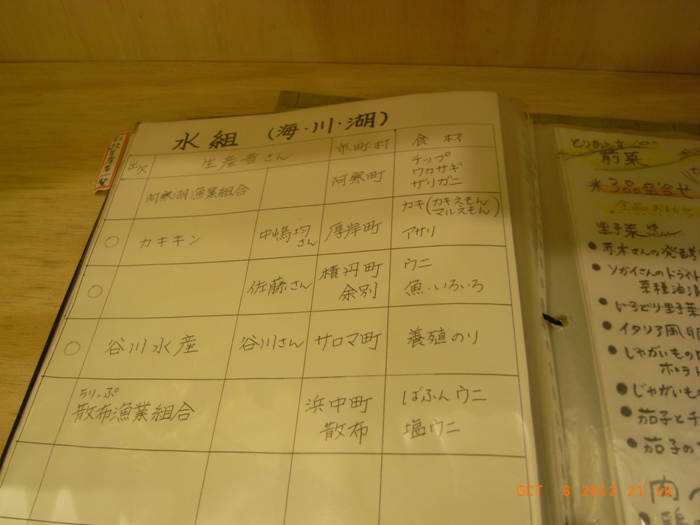 水組 (海・川・湖)
出欠 生産者さん 市町村 食材
阿寒湖漁業組合 阿寒町 チップ
ワカサギ
ザリガニ
○ カキキン 中嶋均さん 厚岸町 カキ(カキえもん
マルえもん)
アサリ
○ 佐藤さん 積丹町 ウニ
余別 魚・いろいろ
○ 谷川水産 谷川さん サロマ町 養殖のり
ちりっぷ
散布漁業組合 浜中町 ばふんウニ
散布 塩ウニ
前菜
3品盛合せ
里子菜
ソガイさんのドライト
菜種油漬
いろどり里子菜
じゃがいもの
じゃがいも
茄子とチ
茄子の
肉
OCT 6 2012 21